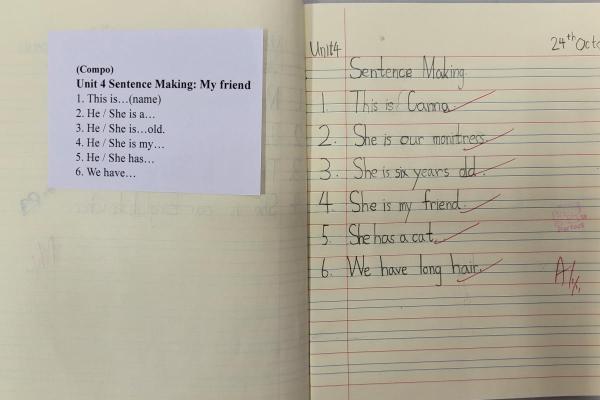 (Compo)
Unit 4 Sentence Making: My friend
1. This is…(name)
2. He / She is a…
3. He / She is…old.
4. He / She is my…
5. He / She has…
6. We have…
Unit4
24th Octo
Sentence Making
1. This is
2. She is our monitress.
3. She is six years old.
4. She is my friend.
5. She has a cat.
6. We have long hair.